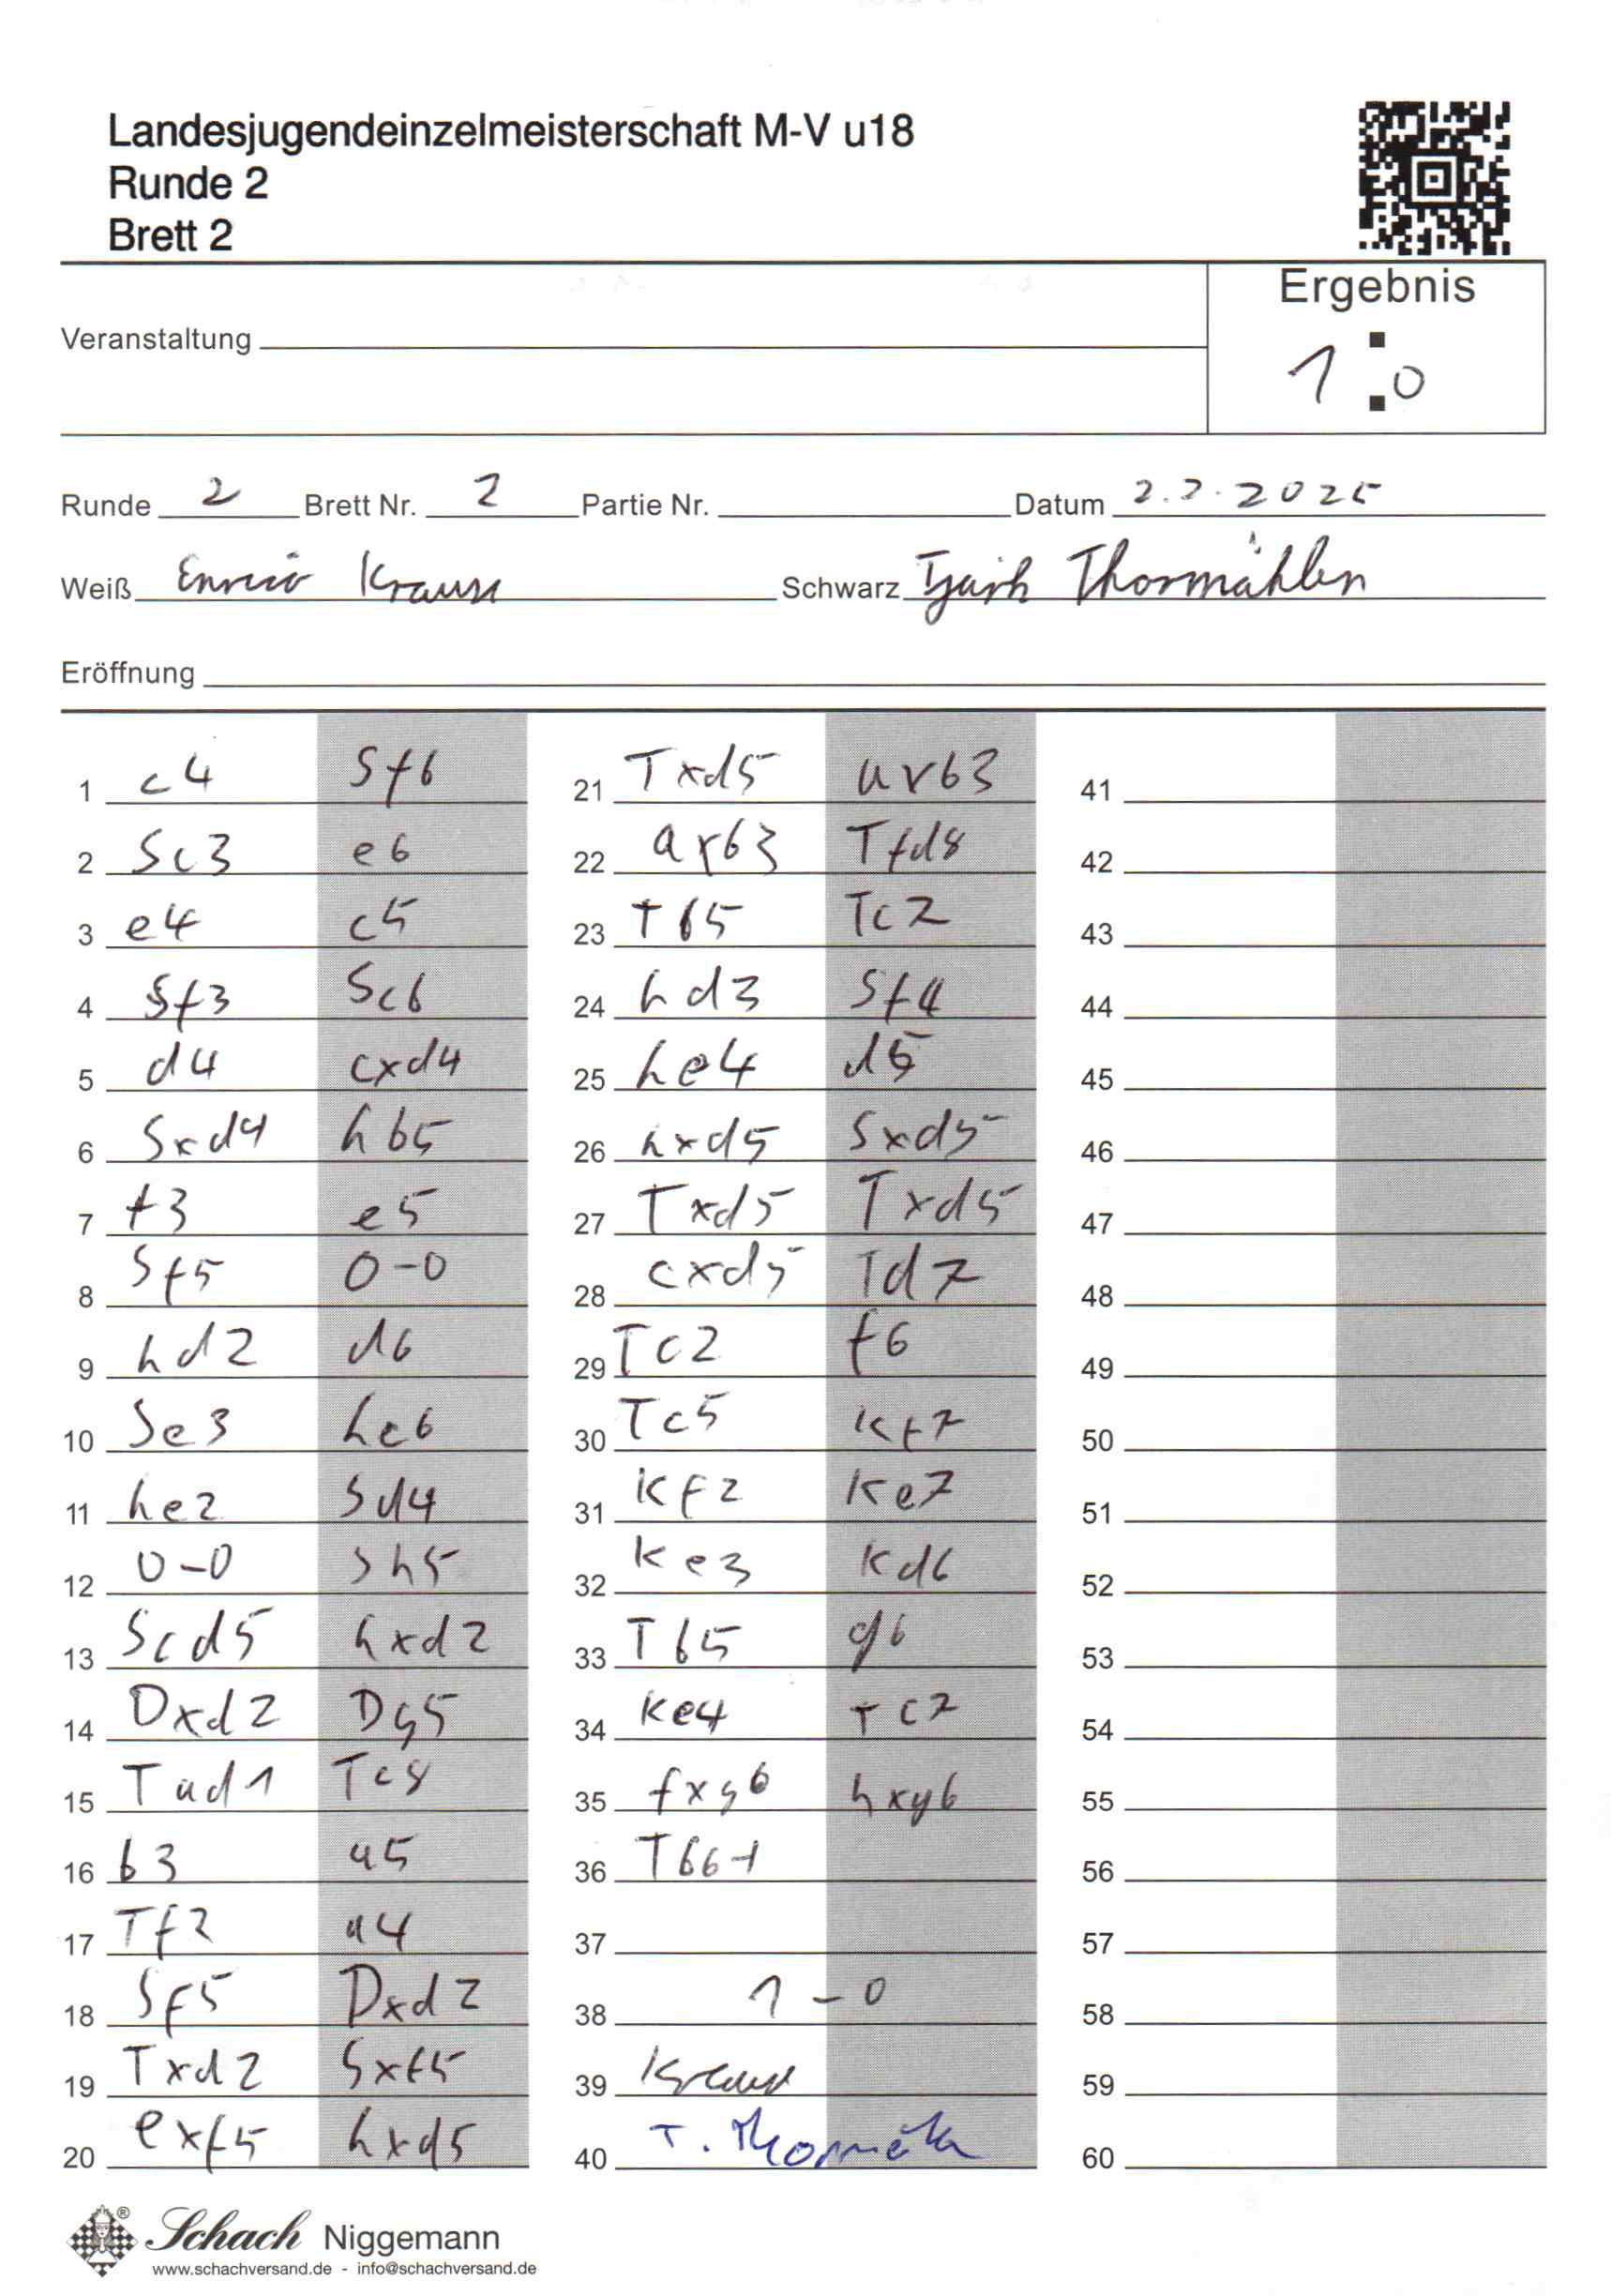 Landesjugendeinzelmeisterschaft M-V u18
Runde 2
Brett 2
Ergebnis
1 : 0
Veranstaltung
Runde 2 Brett Nr. 2 Partie Nr. Datum 2.2.2025
Weiß Enrico Krause Schwarz Thormählen
Eröffnung
1 c4 Sf6 21 Txd5 axb3 41
2 Sc3 e6 22 axb3 Tfd8 42
3 e4 c5 23 Tb5 Tc7 43
4 Sf3 Sc6 24 Ld3 Sf4 44
5 d4 cxd4 25 Le4 d5 45
6 Sxd4 Lb5 26 Lxd5 Sxd5 46
7 f3 e5 27 Txd5 Txd5 47
8 Sf5 0-0 28 cxd5 Td7 48
9 Ld2 d6 29 Tc2 f6 49
10 Se3 Le6 30 Tc5 Kf7 50
11 Le2 Sd4 31 Kf2 Ke7 51
12 0-0 Sh5 32 Ke3 Kd6 52
13 Scd5 Lxd2 33 Tb5 g6 53
14 Dxd2 Dg5 34 Ke4 Tc7 54
15 Tad1 Tc8 35 fxg6 hxg6 55
16 b3 a5 36 Tb6+ 56
17 Tf2 a4 37 57
18 Sf5 Dxd2 38 1-0 58
19 Txd2 Sxf5 39 Krause 59
20 exf5 Lxd5 40 T. Thormählen 60
Schach Niggemann
www.schachversand.de - info@schachversand.de